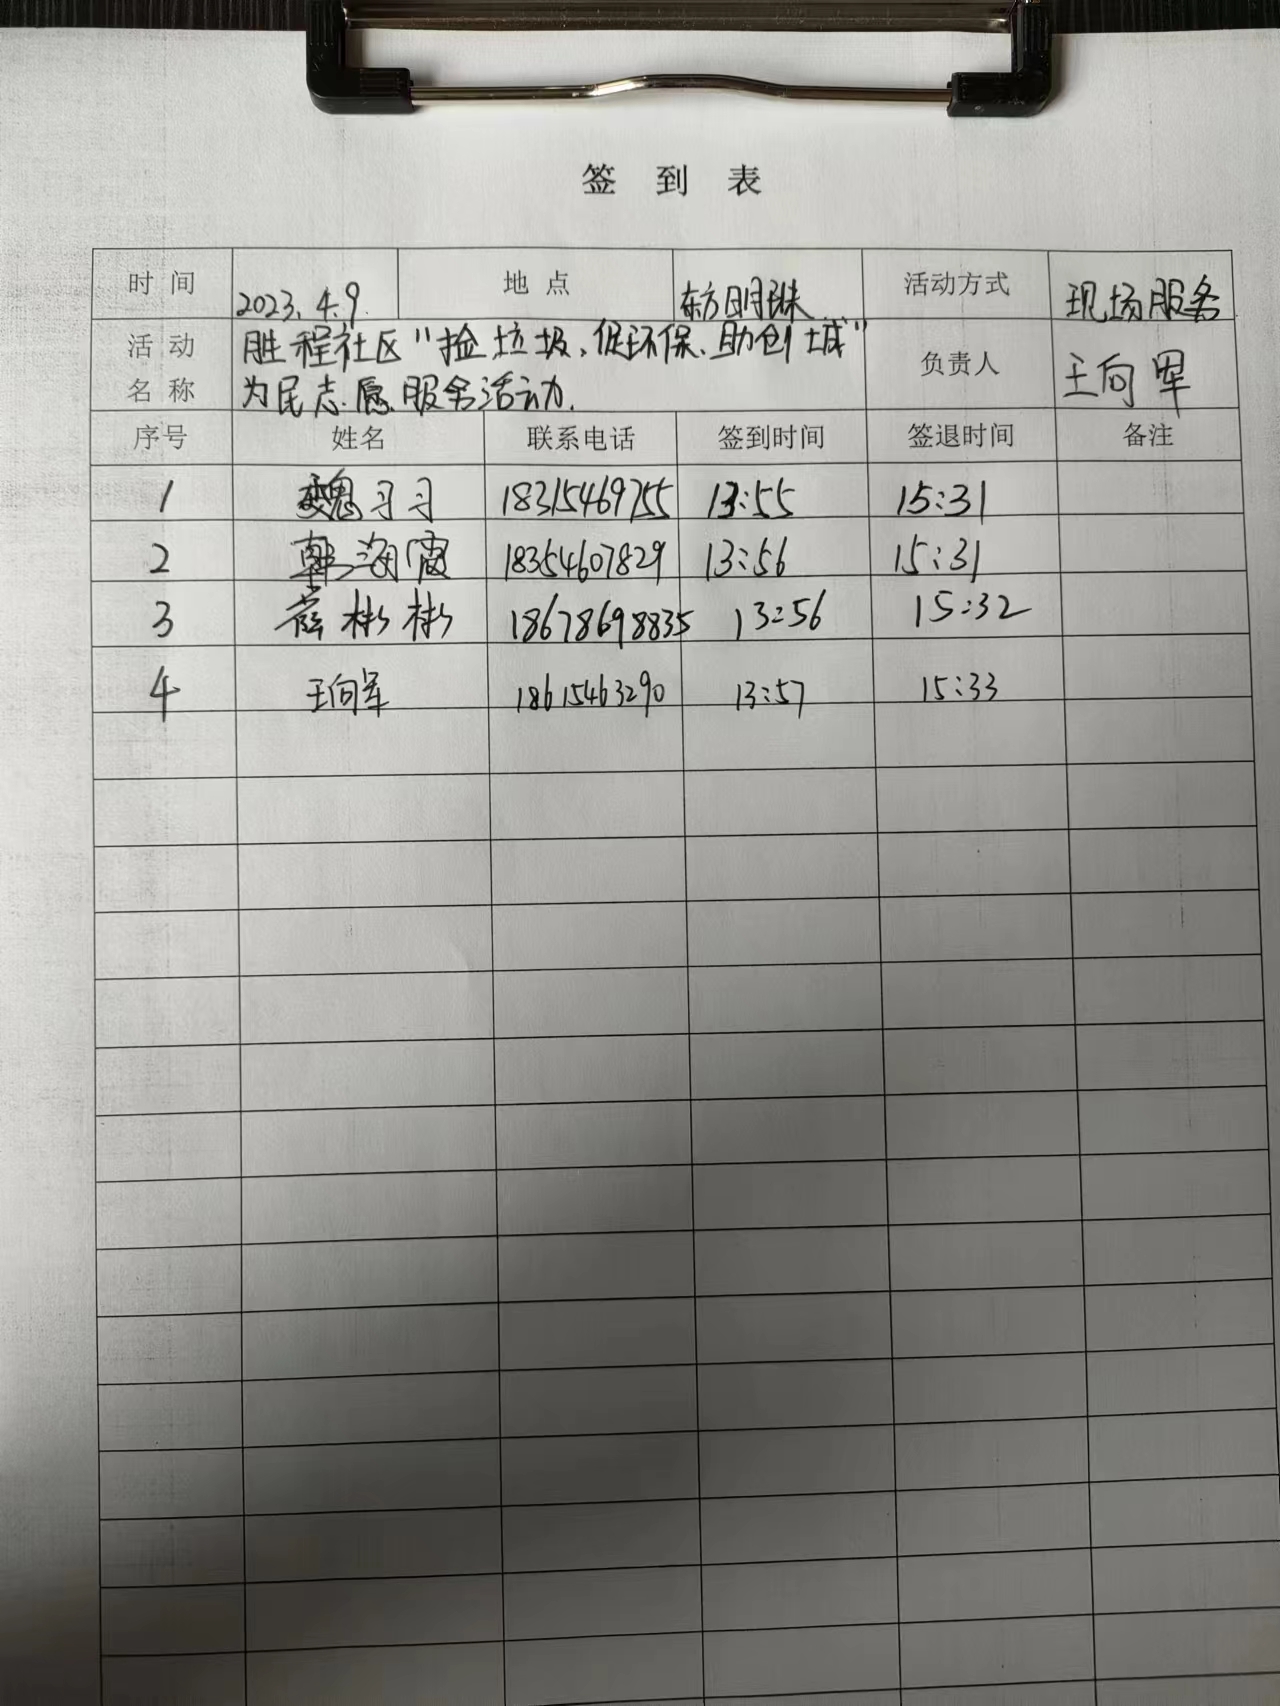 签到表
时间 2023.4.9 地点 东方明珠 活动方式 现场服务
活动名称 胜程社区"捡垃圾、促环保、助创城" 负责人 王向军
为民志愿服务活动.
序号 姓名 联系电话 签到时间 签退时间 备注
1 魏习习 18315469755 13:55 15:31
2 韩海霞 18354607829 13:56 15:31
3 薛彬彬 18678698835 13:56 15:32
4 王向军 18615463290 13:57 15:33